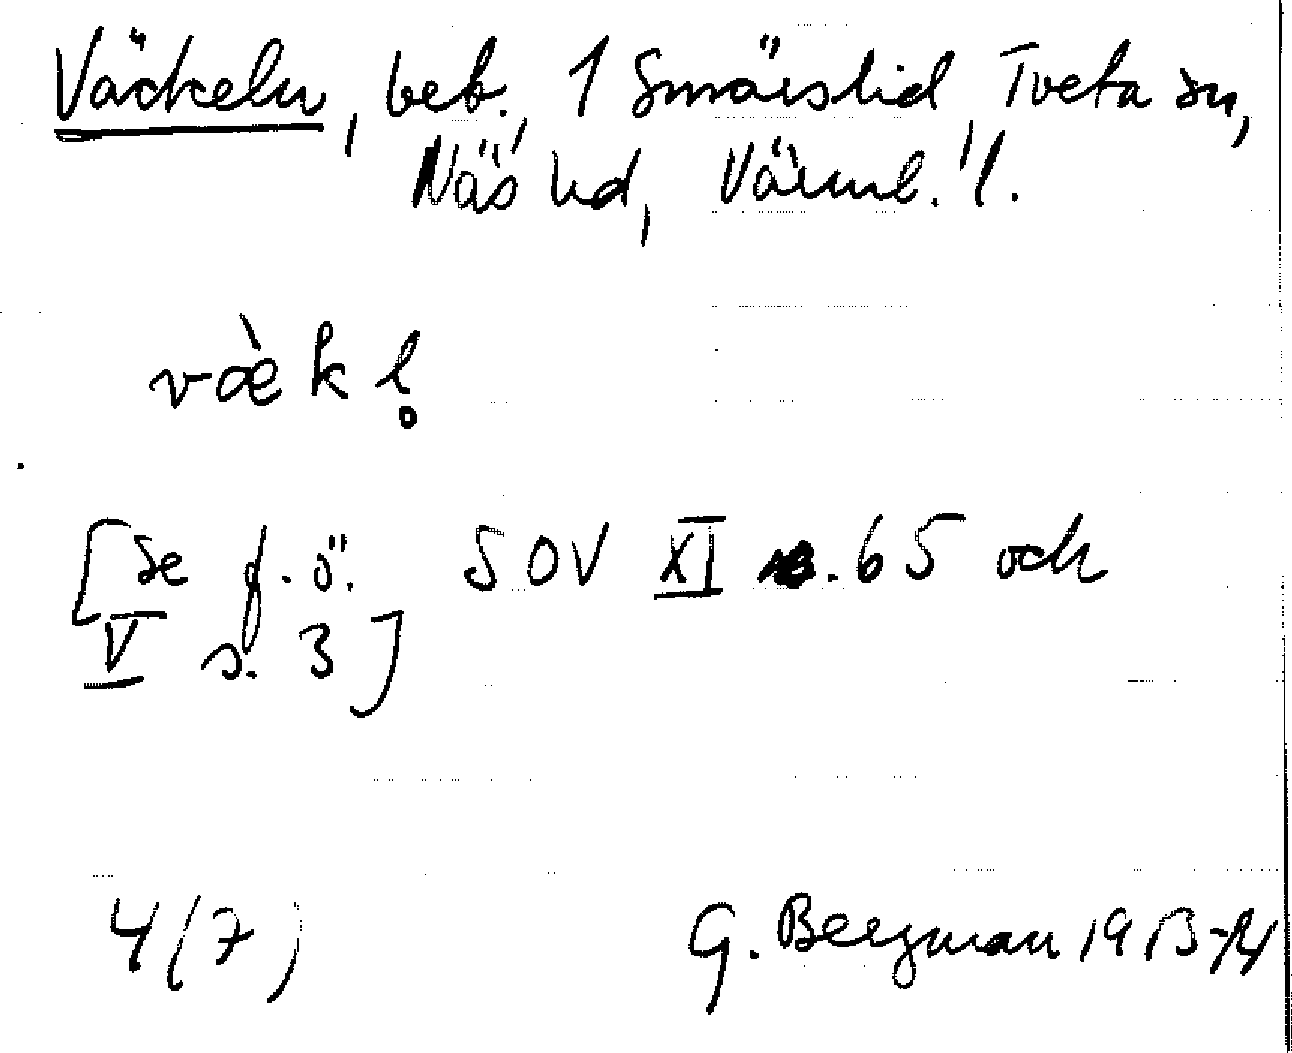 Väckeln, beb., 1 Smärslid, Tveta sn,
Näs hd, Värml. l.
væ̀kl̥
[se f. ö. SOV XI s. 65 och
V s. 3]
4(7)
G. Bergman 1913-14